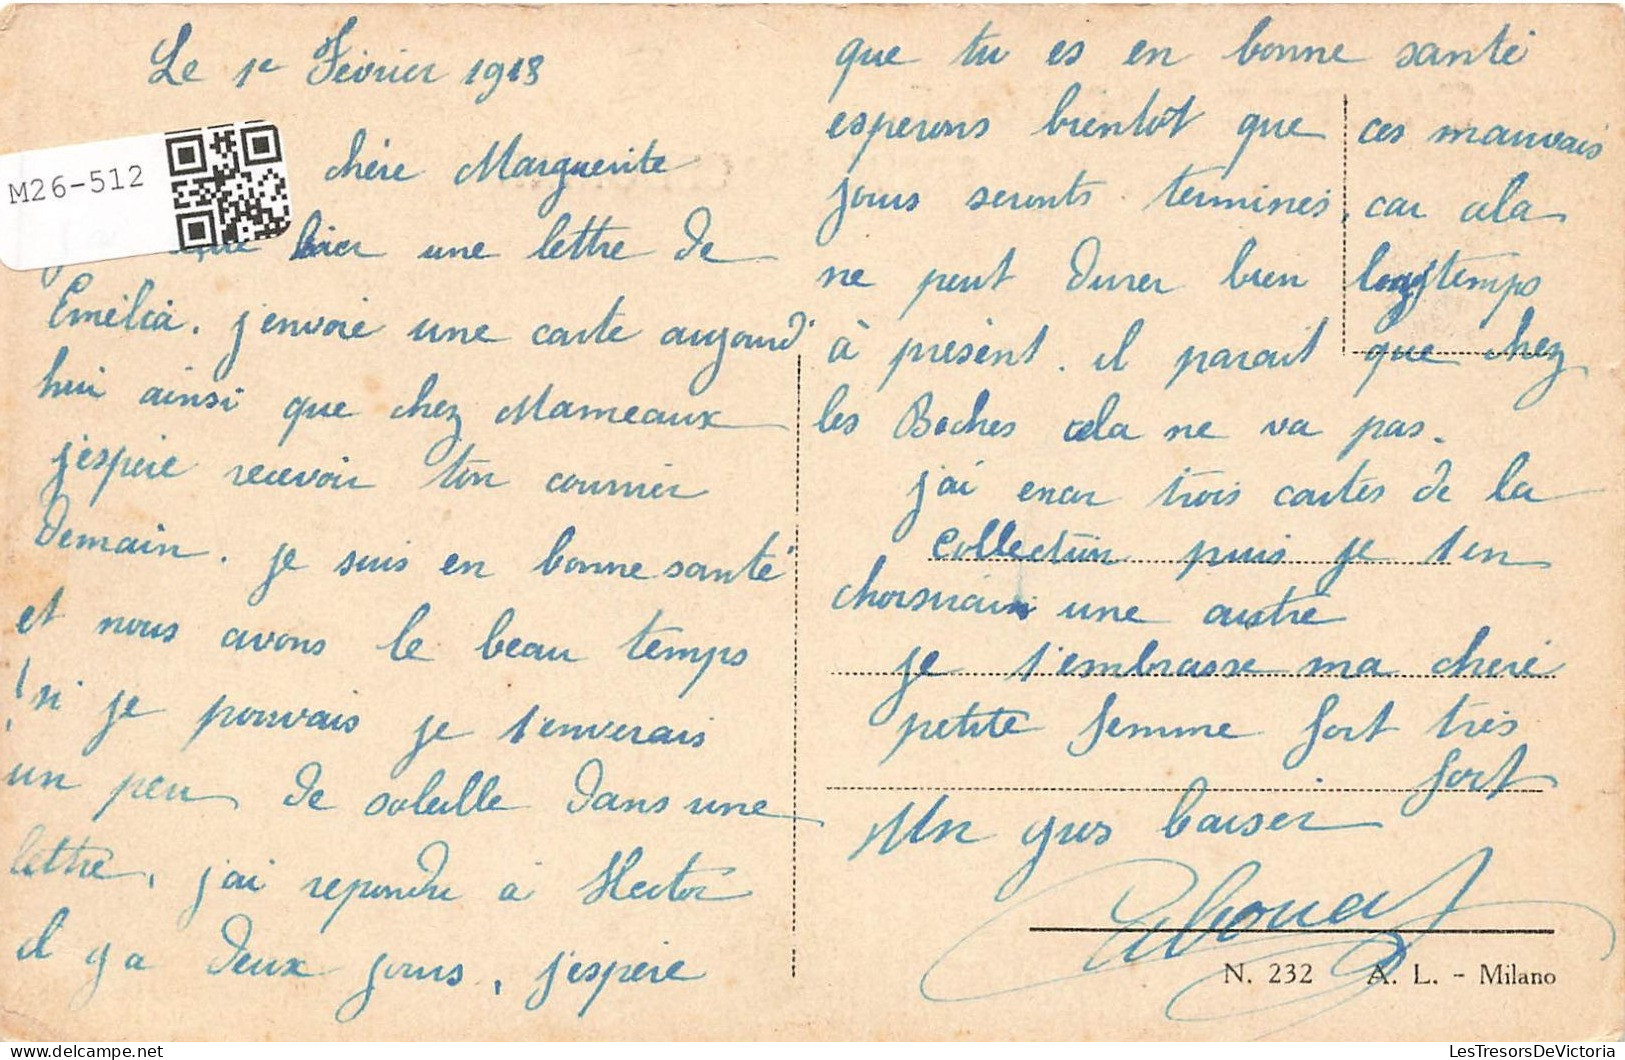 Le 1e Fevrier 1918
M26-512
chère Marguerite
hier une lettre de
Emélia. j'envoie une carte aujourd'
hui ainsi que chez Mameaux
j'espère recevoir ton courrier
Demain. je suis en bonne santé
et nous avons le beau temps
si je pouvais je t'enverais
un peu de soleille dans une
lettre, j'ai repondu a Hector
il y a deux jours, j'espère
que tu es en bonne santé
esperons bientôt que ces mauvais
jours seronts terminés, car cela
ne peut durer bien longtemps
à présent. il parait que chez
les Boches cela ne va pas.
j'ai encor trois cartes de la
collection puis je t'en
choisirais une autre
je t'embrasse ma cheré
petite femme fort très
fort
Un gros baiser
N. 232 A. L. - Milano
LesTresorsDeVictoria